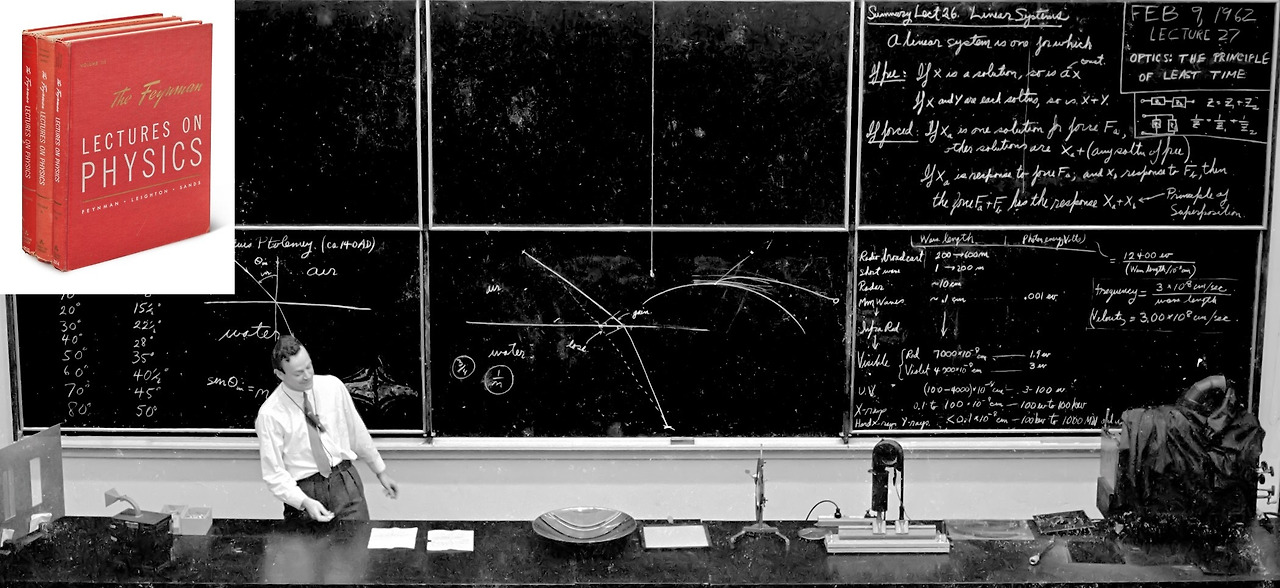 VOLUME III
The Feynman
LECTURES ON
PHYSICS
FEYNMAN • LEIGHTON • SANDS
The Feynman LECTURES ON PHYSICS
The Feynman LECTURES ON PHYSICS
The Feynman LECTURES ON PHYSICS
Summary Lect 26. Linear Systems
A linear system is one for which
const.
If free: If X is a solution, so is aX
If X and Y are each soltns, so is X+Y.
If forced: If Xa is one solution for force Fa,
other solutions are Xa + (any soltn of free)
If Xa is response to force Fa, and Xb response to Fb, then
the force Fa+Fb has the response Xa+Xb ← Principle of
Superposition.
FEB 9, 1962
LECTURE 27
OPTICS: THE PRINCIPLE
OF LEAST TIME
Z = Z1 + Z2
1/Z = 1/Z1 + 1/Z2
Ptolemy. (ca 140 AD)
air
water
20° 15½
30° 22½°
40° 28°
50° 35°
60° 40½°
70° 45°
80° 50°
air
gain
lose
water
Wavelength Photon energy (Volts)
= 12400 ev
Radio broadcast 200 → 600 m
Short wave 1 → 200 m
Radar ~10 cm
MmWaves ~ .1 cm .001 ev
Infra Red
Visible Red 7000×10⁻⁸ cm — 1.9 ev
Violet 4000×10⁻⁸ cm — 3 ev
U.V. 3-100 ev
X-rays 0.1 to 100·10⁻⁸ cm — 100 ev to 100 kev
Hard X-rays γ-rays <0.1×10⁻⁸ cm — 100 kev to 1000 Mev
frequency = 3×10⁸ cm/sec
wave length
Velocity = 3.00×10⁸ cm/sec.